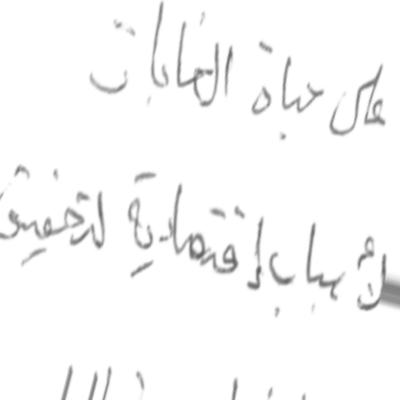 على حياة الغابات
لأسباب إقتصادية لتحقيق